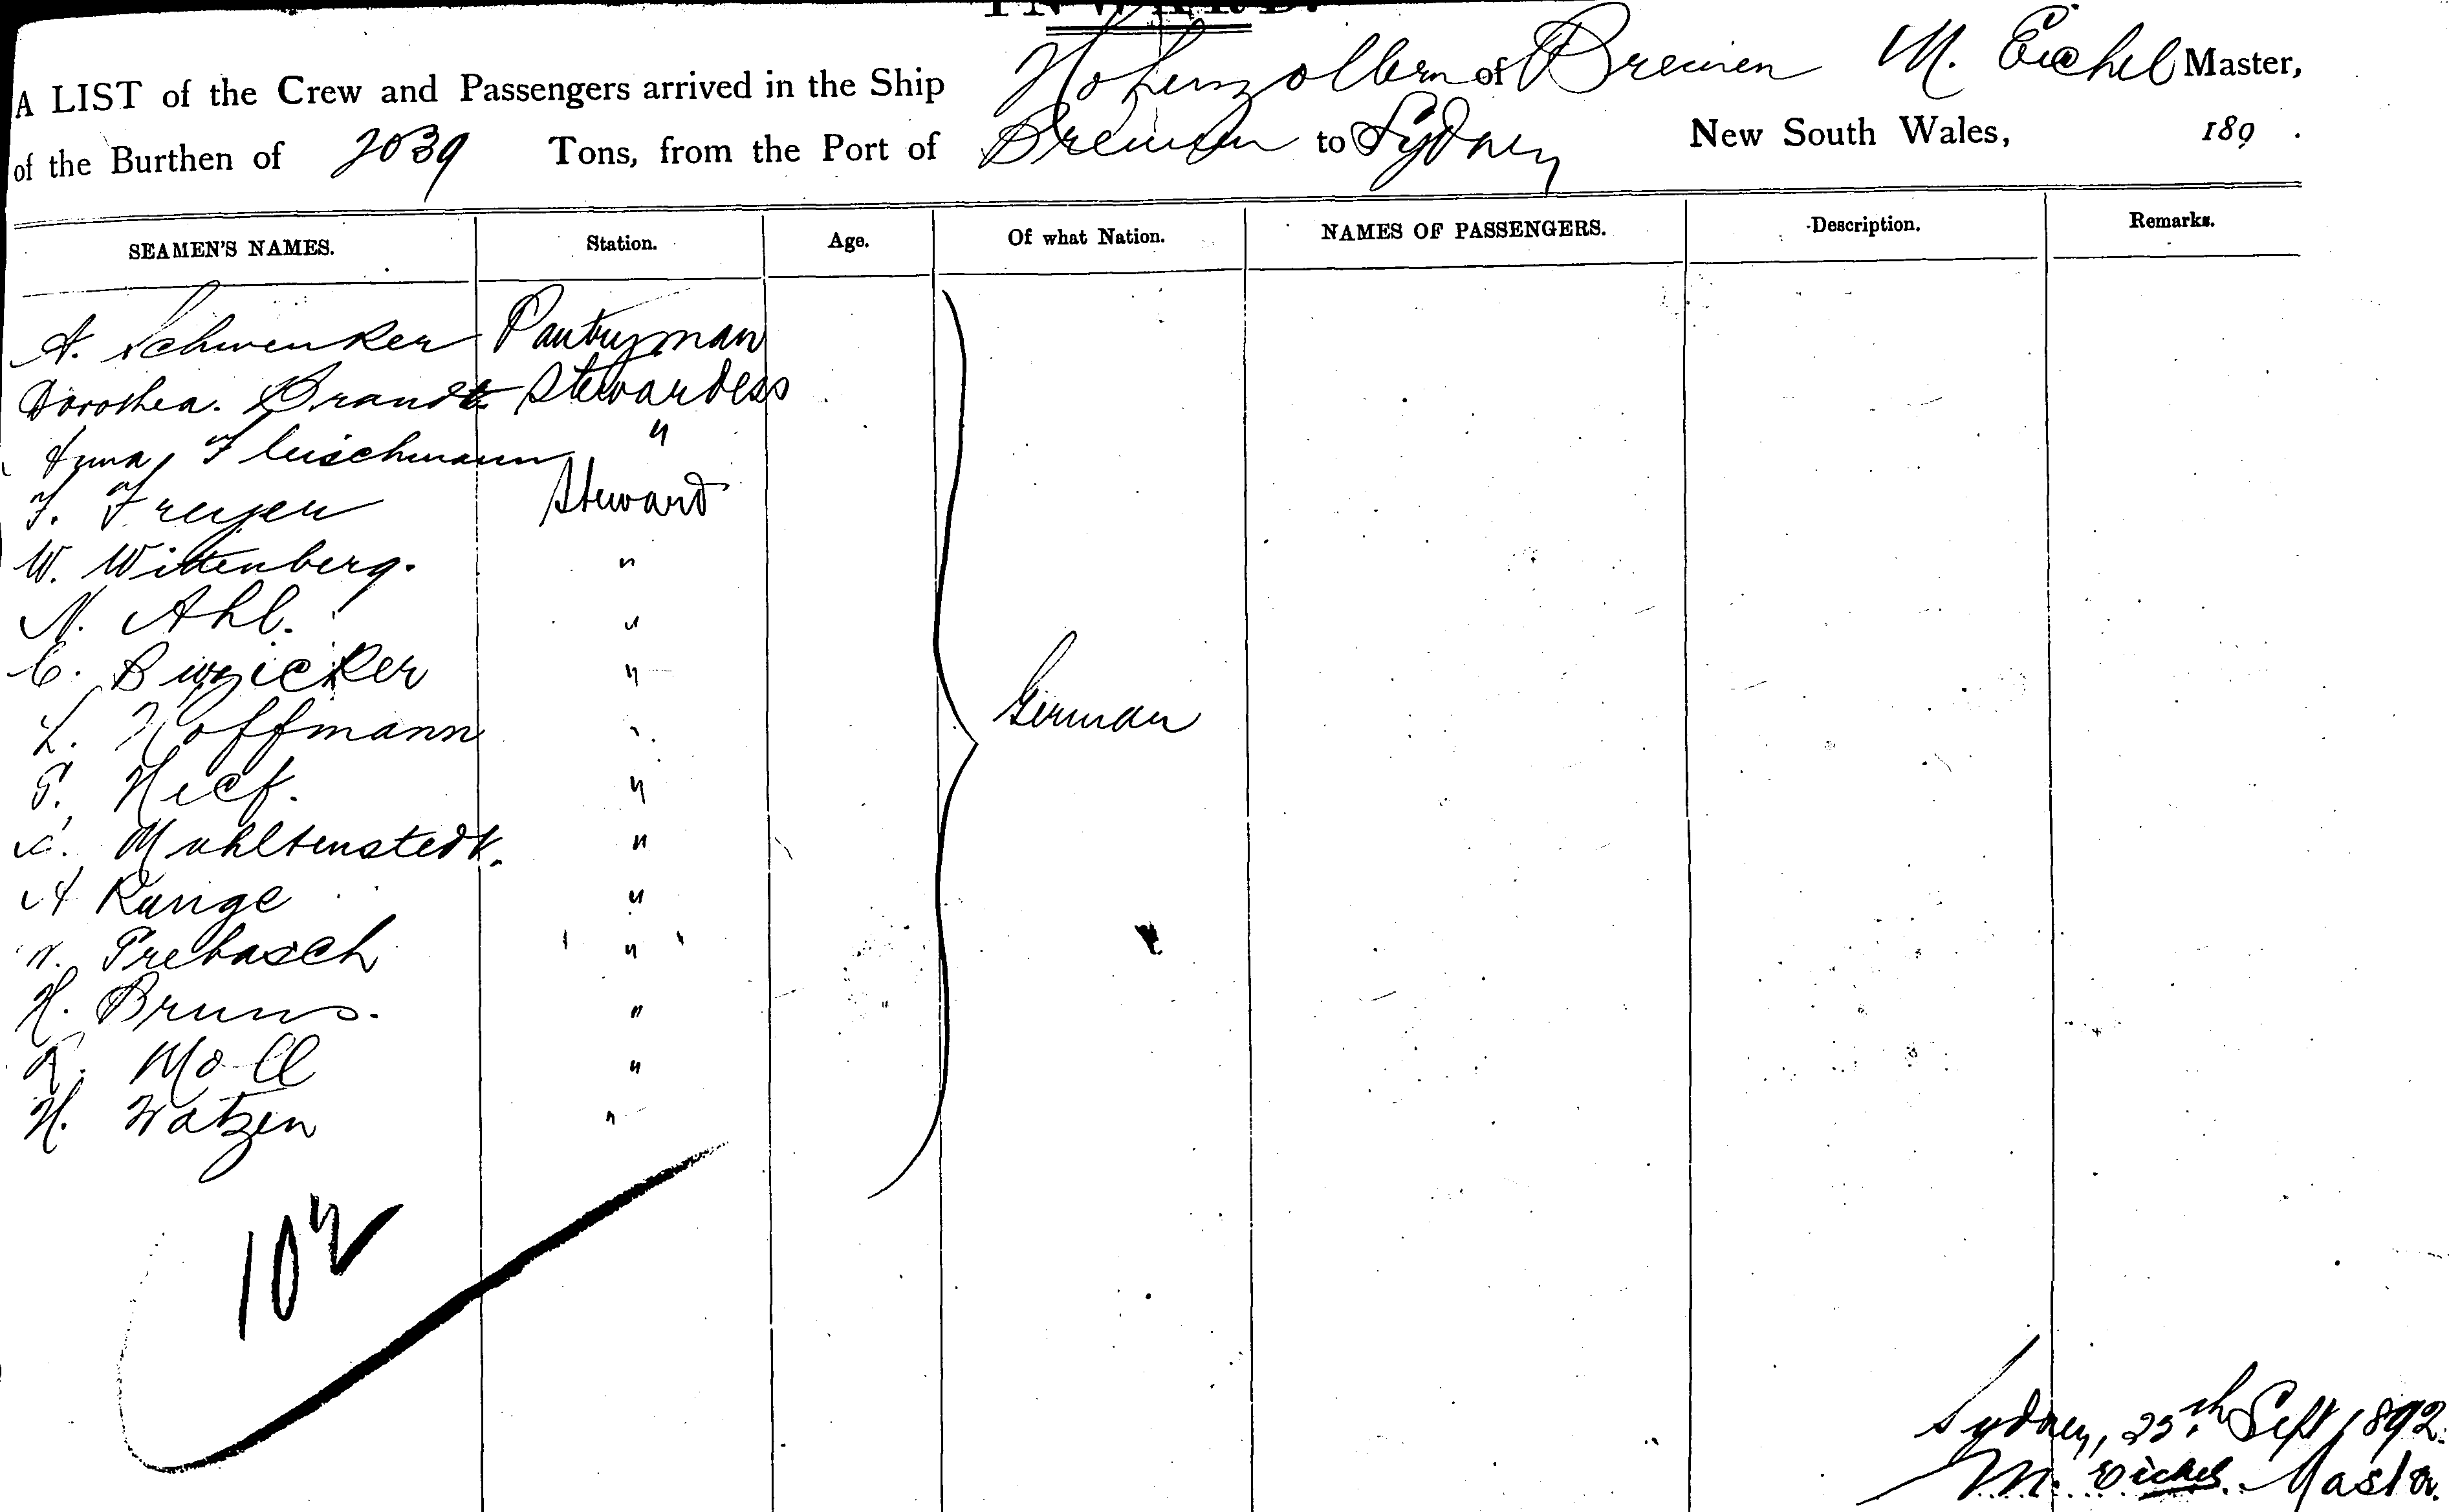 INWARD.
A LIST of the Crew and Passengers arrived in the Ship Hohenzollern of Bremen M. Eichel Master,
of the Burthen of 2039 Tons, from the Port of Bremen to Sydney New South Wales, 189 .
SEAMEN'S NAMES. Station. Age. Of what Nation. NAMES OF PASSENGERS. Description. Remarks.
A. Schwenker Pantryman
Dorothea. Brandt Stewardess
Anna Fleischmann "
F. Freyer Steward
W. Wittenberg. "
N. Ahl. "
C. "
L. Hoffmann "
German
"
Muhltenstedt. "
A Runge "
Prebasch "
H. Bruns. "
Moll "
H. Watzen "
102
Sydney, 25th Sept 1892.
M. Eichel Master.